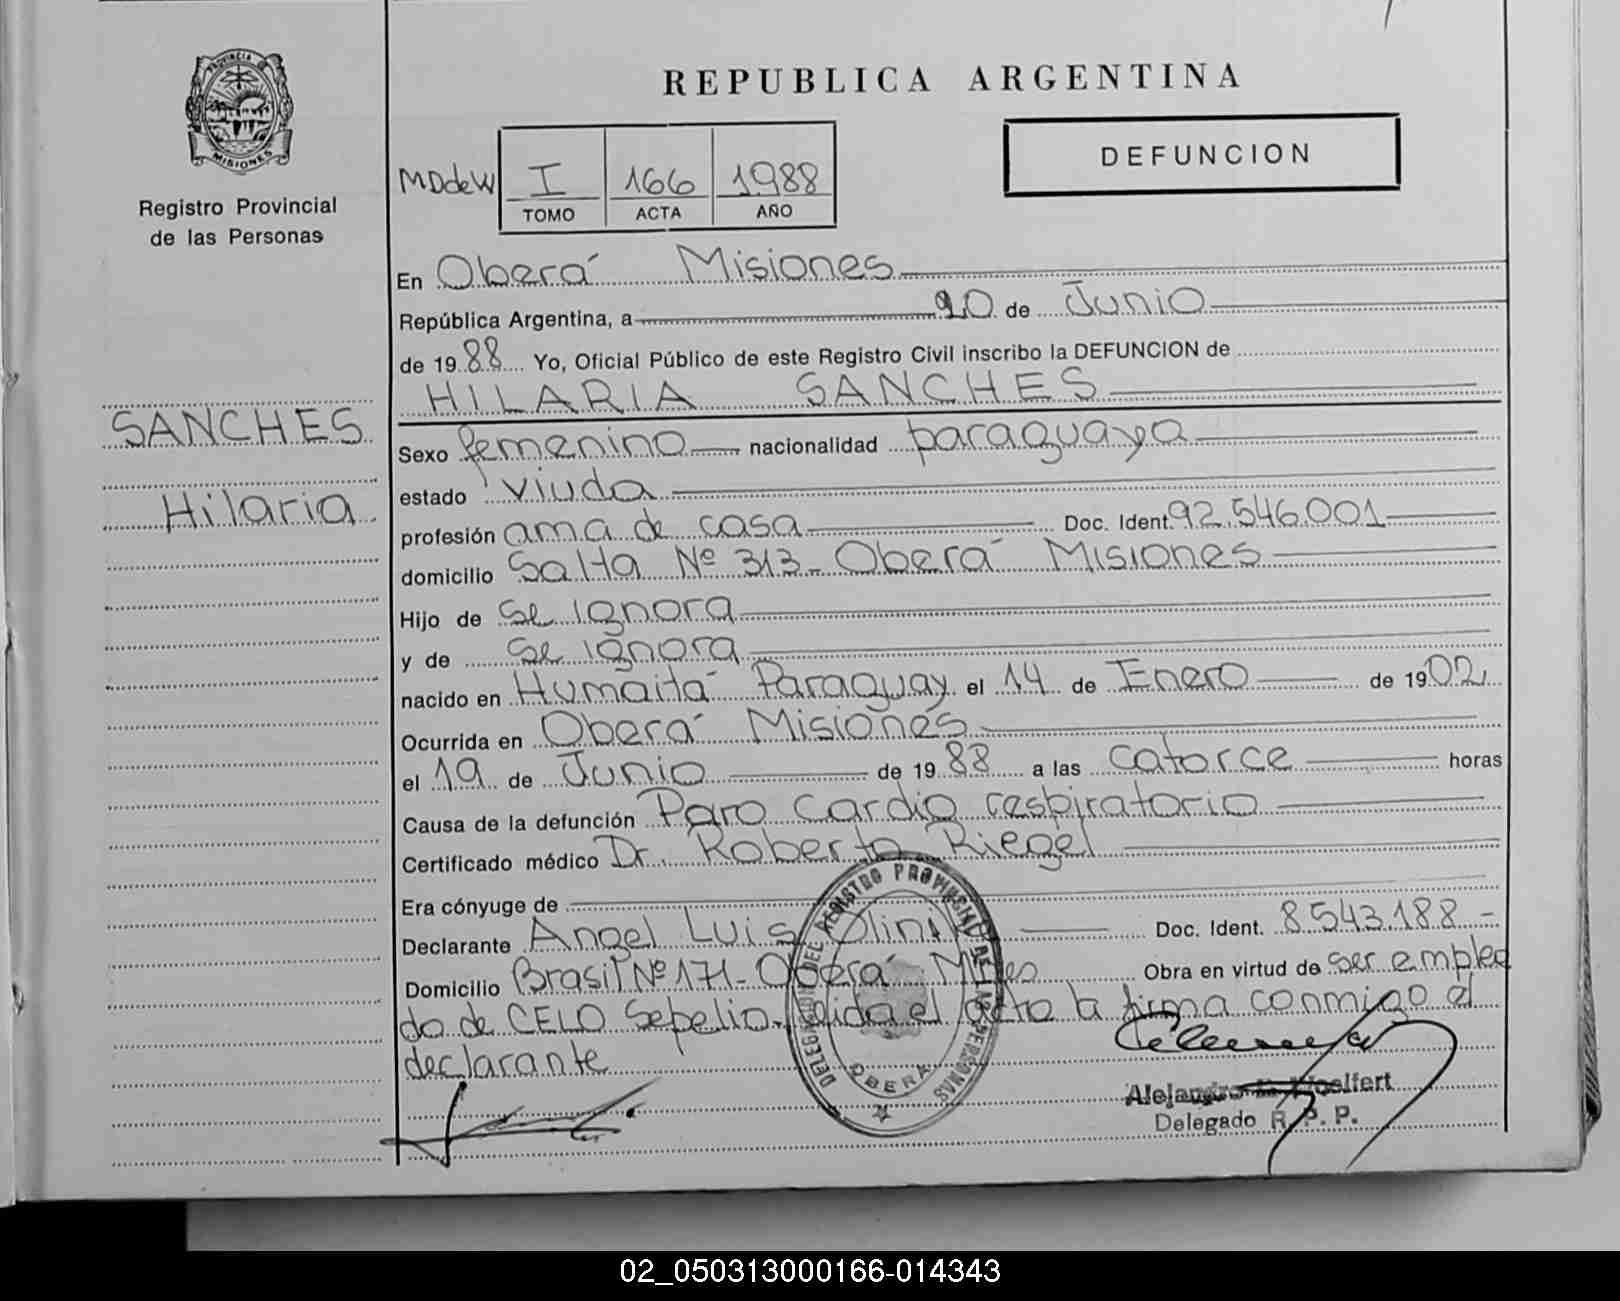 PROVINCIA DE
MISIONES
Registro Provincial
de las Personas
SANCHES
Hilaria
REPUBLICA ARGENTINA
DEFUNCION
MDdeW I 166 1988
TOMO ACTA AÑO
En Oberá Misiones
República Argentina, a 20 de Junio
de 1988 Yo, Oficial Público de este Registro Civil inscribo la DEFUNCION de
HILARIA SANCHES
Sexo femenino nacionalidad paraguaya
estado viuda
profesión ama de casa Doc. Ident. 92.546.001
domicilio Salta Nº 313- Oberá Misiones
Hijo de se ignora
y de se ignora
nacido en Humaitá Paraguay el 14 de Enero de 1902
Ocurrida en Oberá Misiones
el 19 de Junio de 1988 a las catorce horas
Causa de la defunción Paro Cardio respiratorio
Certificado médico Dr. Roberto Riegel
Era cónyuge de
Declarante Angel Luis Doc. Ident. 8.543.188-
Domicilio Brasil Nº 171- Oberá Mnes Obra en virtud de ser emplea
do de CELO Sepelio. Leida el acta la firma conmigo el
declarante
DELEGACION DEL REGISTRO PROVINCIAL DE LAS PERSONAS
OBERA
Alejandro Woelfert
Delegado R. P. P.
02_050313000166-014343